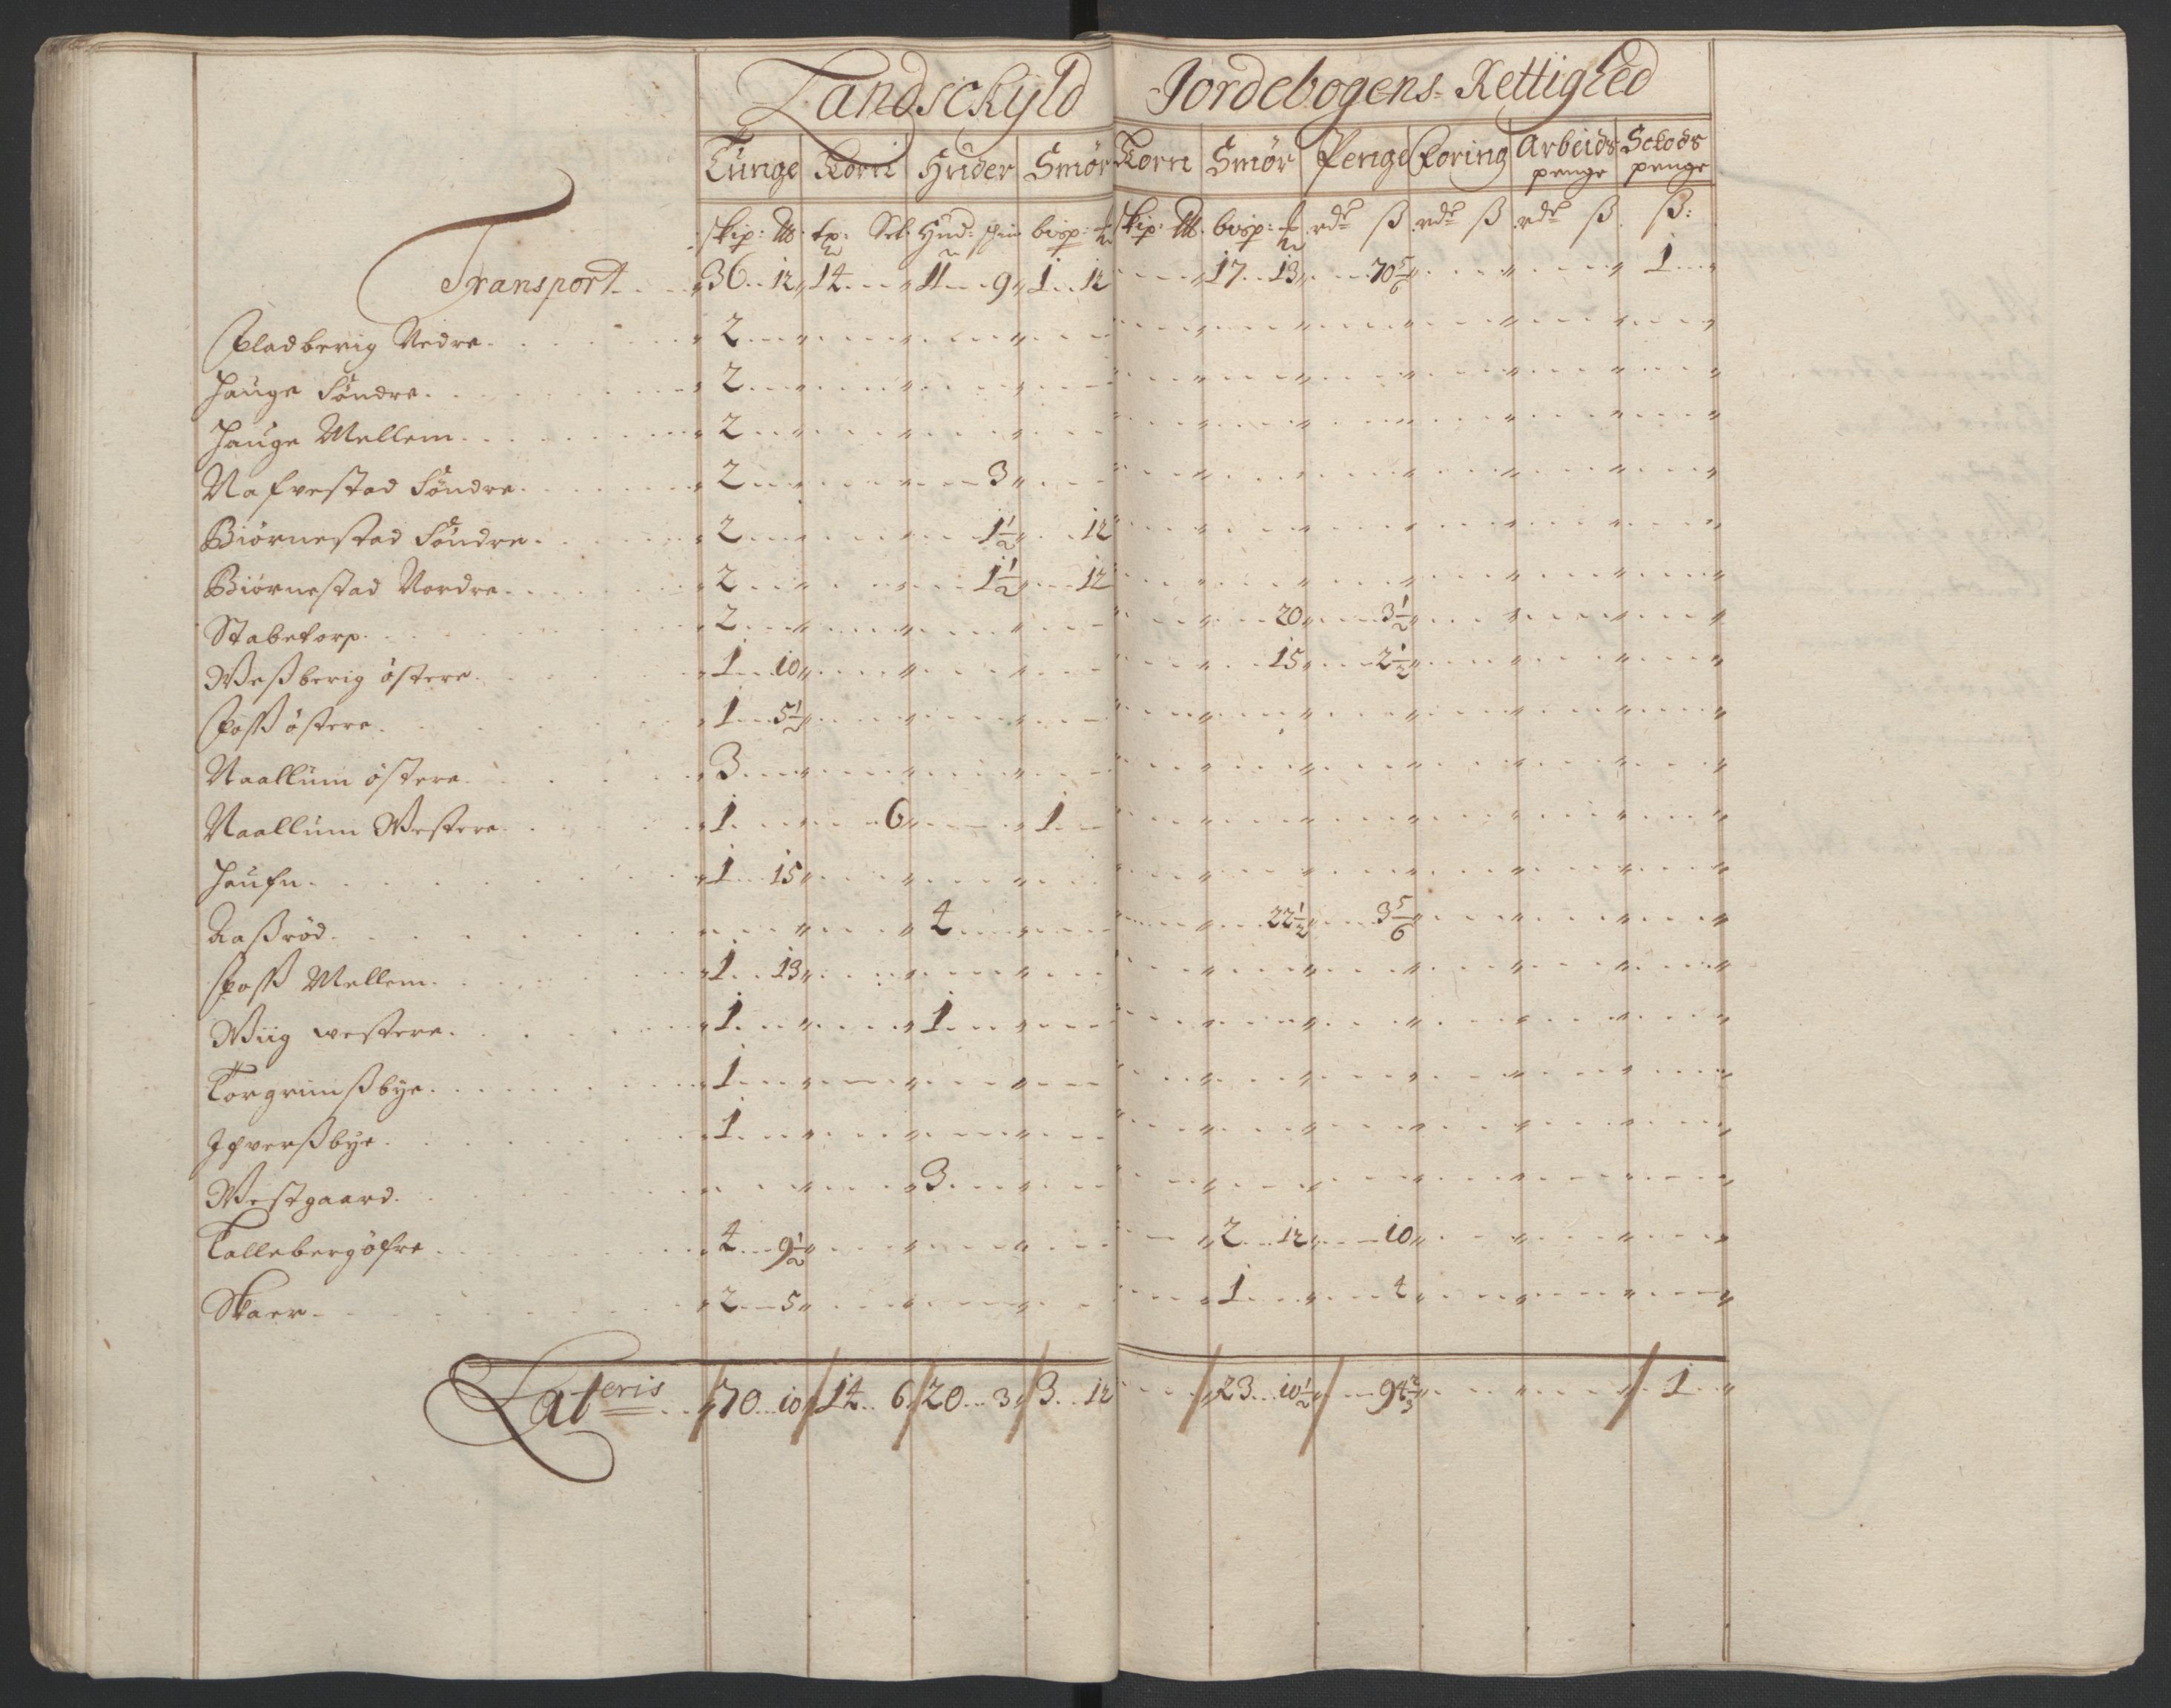 Landschÿld Jordebogens Rettighed
Tunge Korn Huder Smör Korn Smör Penge Foring Arbeids penge Schods penge
skip: tp: Set: Hud: skin bisp: skip: bisp: rdr ß rdr ß rdr ß ß:
Transport 36 12 14 11 9 1 12 17 13 70 5/6 1
Fladberig Nedre 2
Hauge Söndre 2
Hauge Mellem 2
Nafvestad Söndre 2 3
Biörnestad Söndre 2 1 1/2 12
Biörnestad Nordre 2 1 1/2 12
Stabetorp 2 20 3 1/2
Weßberig östere 1 10 15 2 1/2
Foss östere 1 5 1/2
Naallum östere 3
Naallum Westere 1 6 1
Haufn 1 15
Aaßröd 4 22 1/2 3 5/6
Foss Mellem 1 13
Wiig westere 1 1
Torgrimßbye 1
Ifverßbye 1
Westgaard 3
Talleberg öfre 4 9 1/2 2 12 10
Skaer 2 5 1 4
Lateris 70 10 14 6 20 3 3 12 23 10 1/2 94 2/3 1